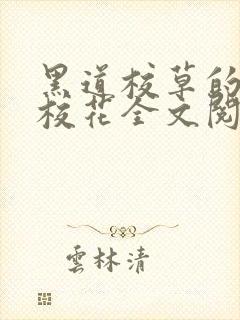 黑道校草的
校花全文閱
雲林清